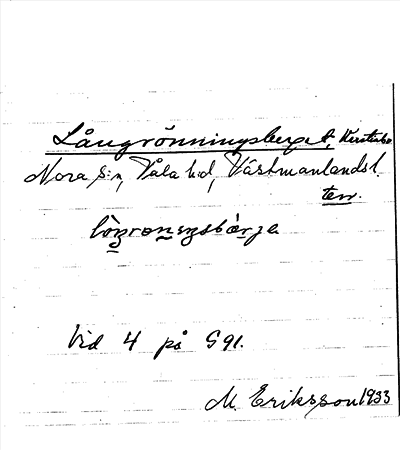 Långrönningsberget, Kerstinbo
Nora s:n, Våla h:d, Västmanlands l.
terr.
lòŋronιŋsbὰrja
Vid 4 på S 91.
M. Eriksson 1933